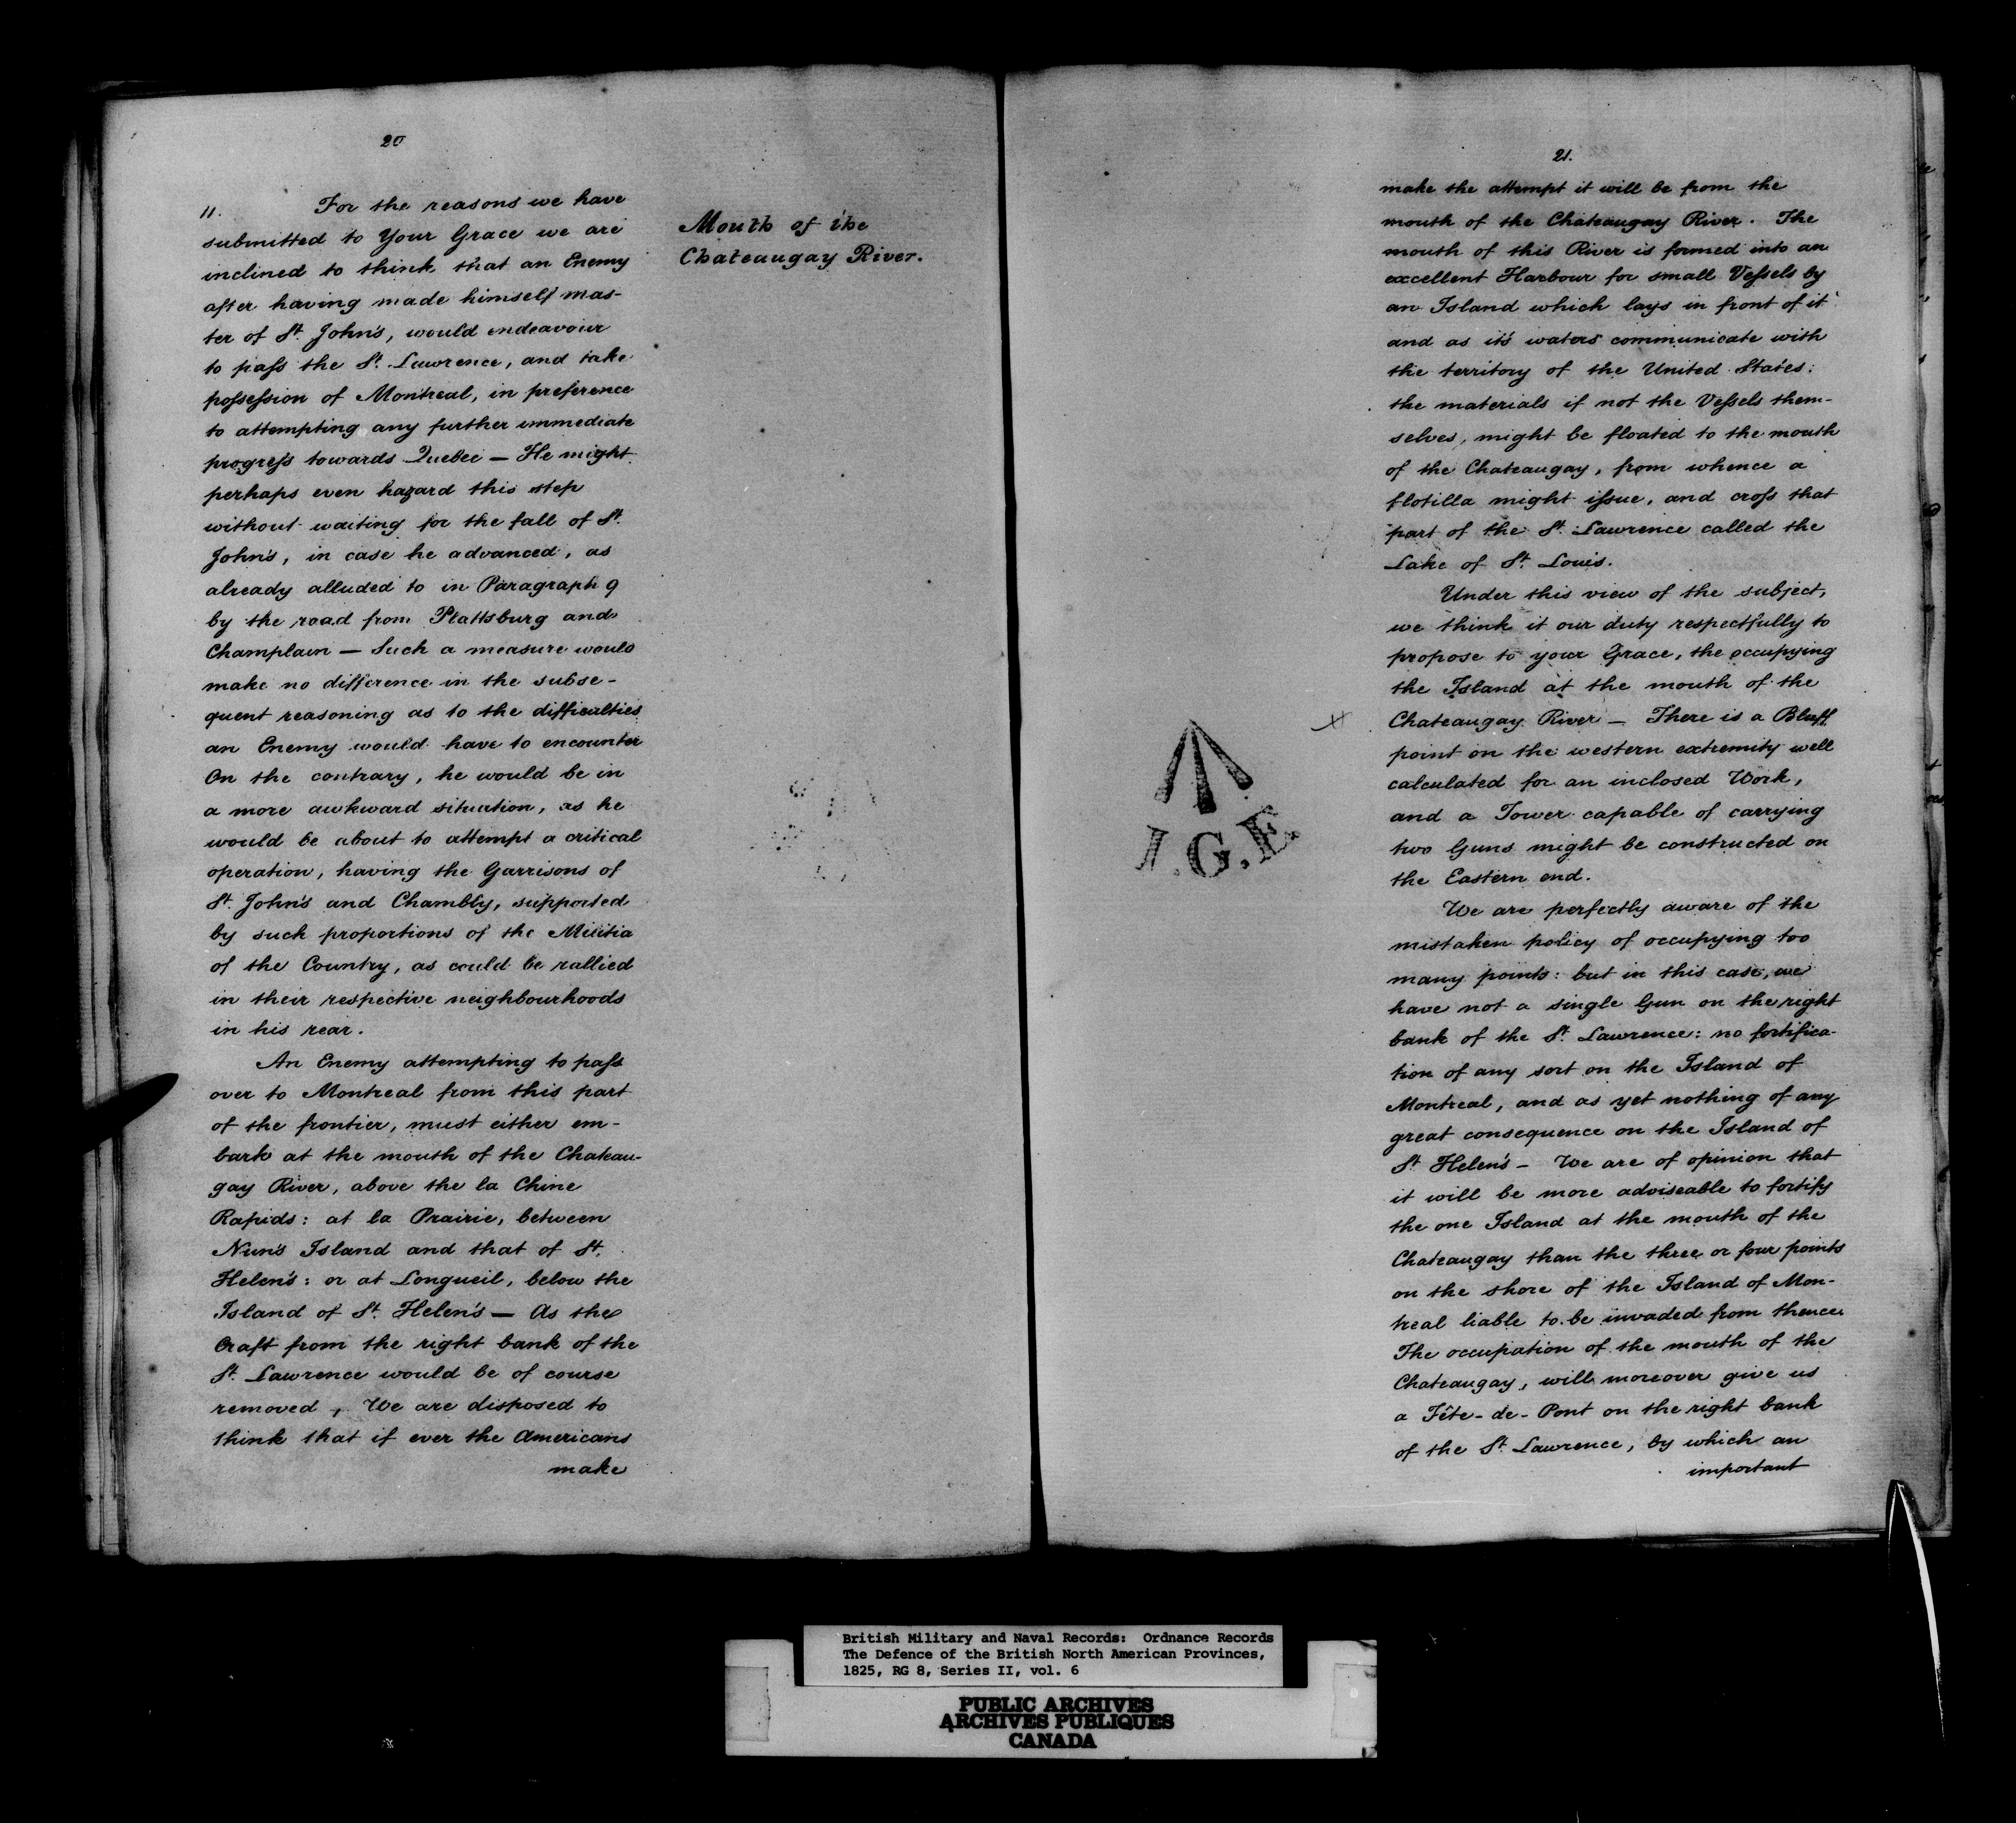 20
11. For the reasons we have
submitted to Your Grace we are
inclined to think that an Enemy
after having made himself mas-
ter of St. John's, would endeavour
to pass the St. Lawrence, and take
possession of Montreal, in preference
to attempting any further immediate
progress towards Quebec — He might
perhaps even hazard this step
without waiting for the fall of St.
John's, in case he advanced, as
already alluded to in Paragraph 9
by the road from Plattsburg and
Champlain — Such a measure would
make no difference in the subse-
quent reasoning as to the difficulties
an Enemy would have to encounter
On the contrary, he would be in
a more awkward situation, as he
would be about to attempt a critical
operation, having the Garrisons of
St. John's and Chambly, supported
by such proportions of the Militia
of the Country, as could be rallied
in their respective neighbourhoods
in his rear.
An Enemy attempting to pass
over to Montreal from this part
of the frontier, must either em-
bark at the mouth of the Chateau-
gay River, above the la Chine
Rapids: at la Prairie, between
Nun's Island and that of St.
Helen's: or at Longueil, below the
Island of St. Helen's — As the
Craft from the right bank of the
St. Lawrence would be of course
removed, We are disposed to
think that if ever the Americans
make
Mouth of the
Chateaugay River.
I.G.E
21.
make the attempt it will be from the
mouth of the Chateaugay River. The
mouth of this River is formed into an
excellent Harbour for small Vessels by
an Island which lays in front of it
and as it's waters communicate with
the territory of the United States:
the materials if not the Vessels them-
selves, might be floated to the mouth
of the Chateaugay, from whence a
flotilla might issue, and cross that
part of the St. Lawrence called the
Lake of St. Louis.
Under this view of the subject,
we think it our duty respectfully to
propose to your Grace, the occupying
the Island at the mouth of the
Chateaugay River — There is a Bluff
point on the western extremity well
calculated for an inclosed Work,
and a Tower capable of carrying
two Guns might be constructed on
the Eastern end.
We are perfectly aware of the
mistaken policy of occupying too
many points: but in this case, we
have not a single Gun on the right
bank of the St. Lawrence: no fortifica-
tion of any sort on the Island of
Montreal, and as yet nothing of any
great consequence on the Island of
St. Helen's — We are of opinion that
it will be more adviseable to fortify
the one Island at the mouth of the
Chateaugay than the three or four points
on the shore of the Island of Mon-
treal liable to be invaded from thence.
The occupation of the mouth of the
Chateaugay, will moreover give us
a Tête-de-Pont on the right bank
of the St. Lawrence, by which an
important
British Military and Naval Records: Ordnance Records
The Defence of the British North American Provinces,
1825, RG 8, Series II, vol. 6
PUBLIC ARCHIVES
ARCHIVES PUBLIQUES
CANADA